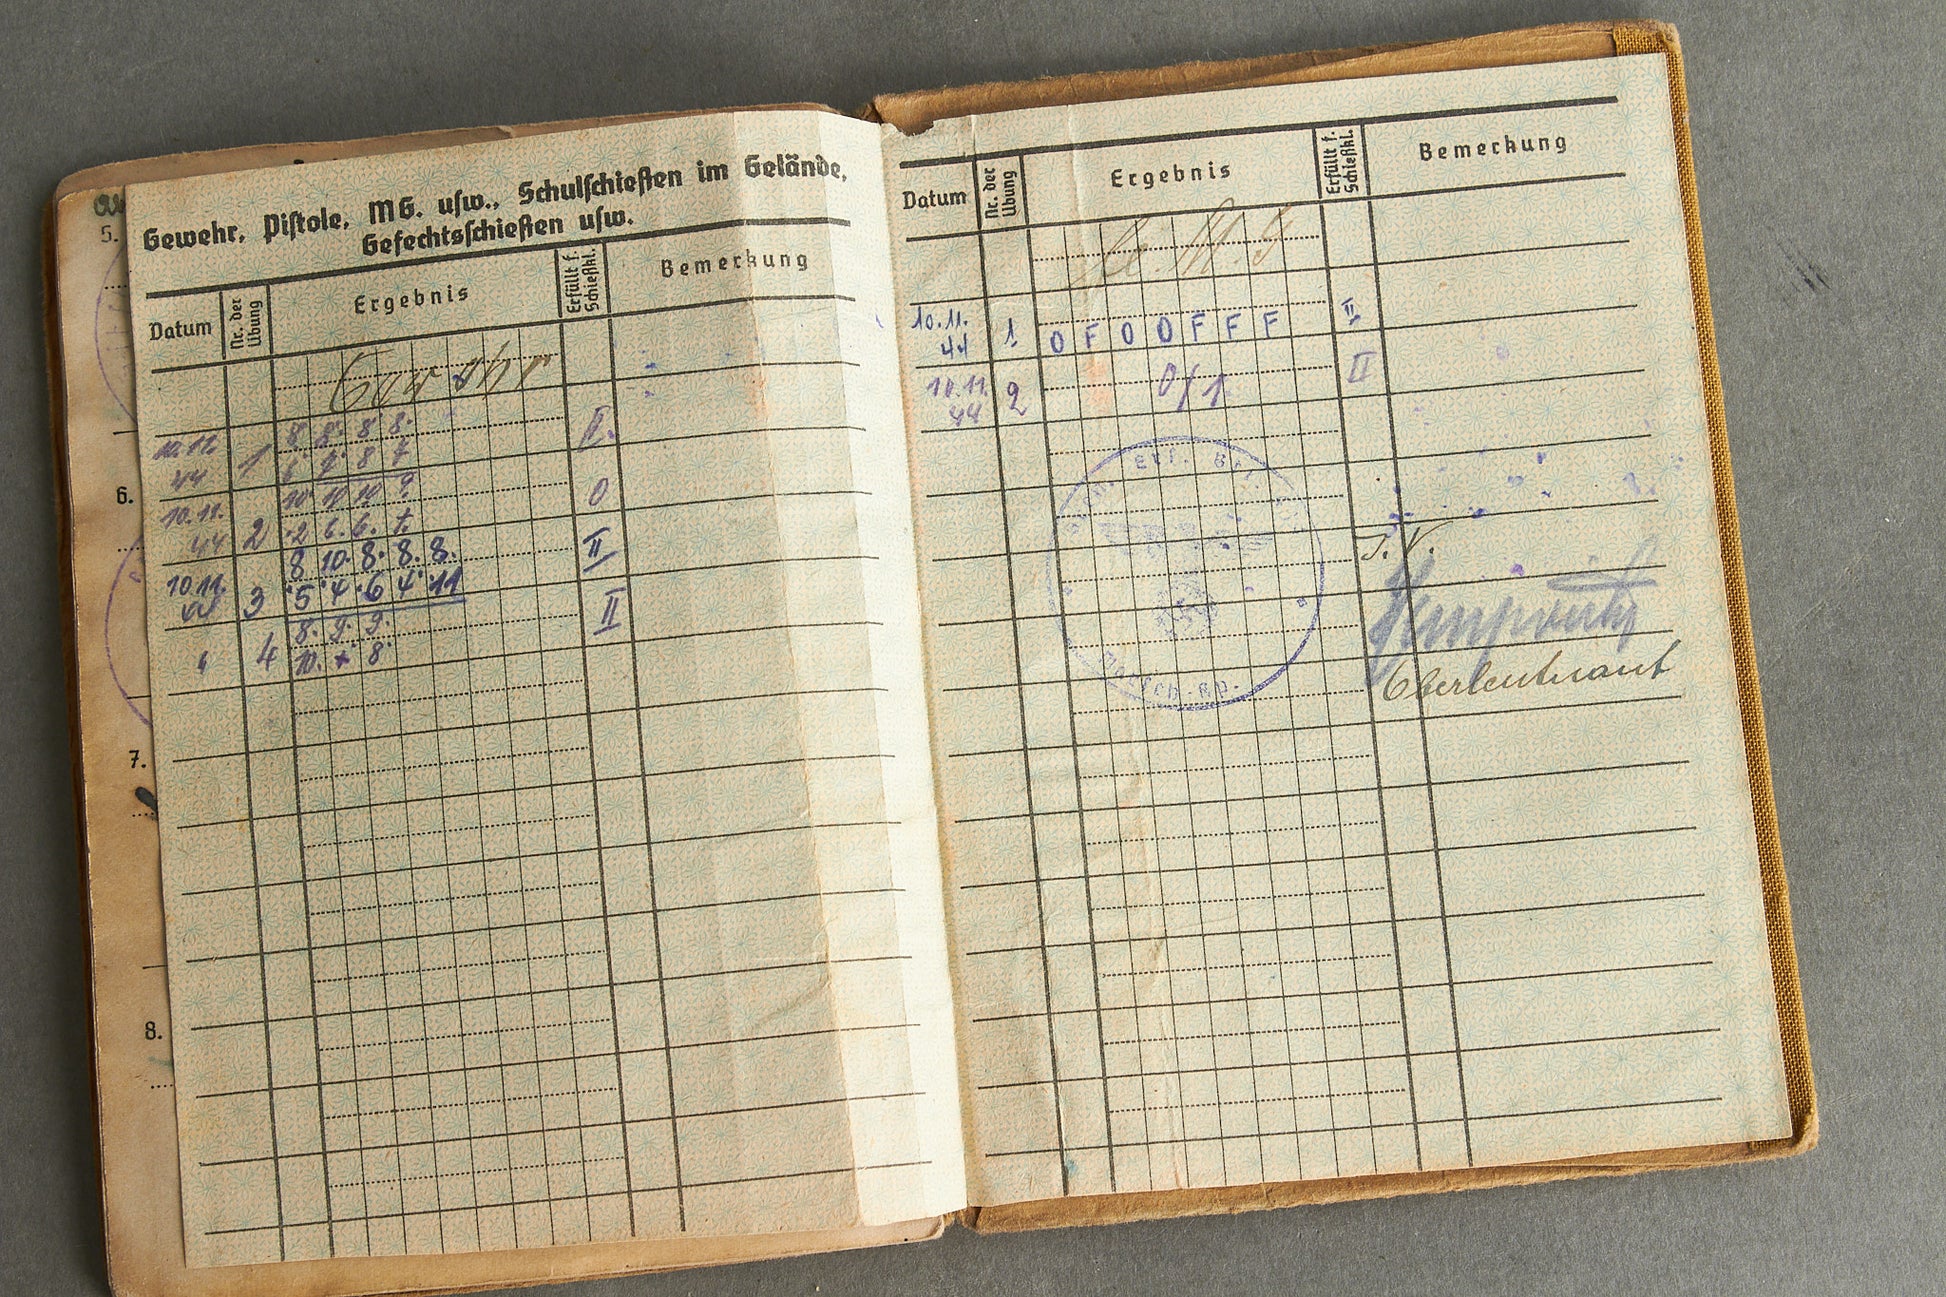 5.
6.
7.
8.
Gewehr, Pistole, MG. usw., Schulschießen im Gelände,
Gefechtsschießen usw.
Datum Nr. der Übung Ergebnis Erfüllt f. Schießkl. Bemerkung
Gewehr
10.11. 44 1 8 8. 8 8. II.
8 7
10.11. 44 2 10 11 10 9 0
2 6. 6. 7.
10.11. 44 3 8 10. 8. 8. 8. II
5 4 6 4 11
" 4 8. 9. 9. II
10. 8
Datum Nr. der Übung Ergebnis Erfüllt f. Schießkl. Bemerkung
le. M.G
10.11. 44 1 O F O O F F F II
10.11. 44 2 0/1 II
Ers. Btl.
Marsch-Kp.
J. V.
Oberleutnant